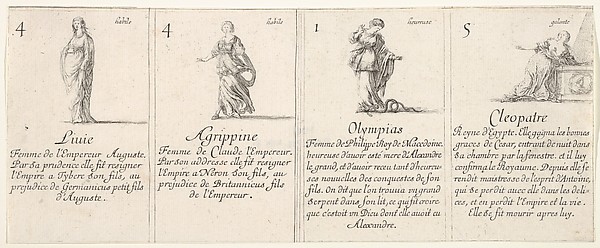 4 habile
Livie
Femme de l'Empereur Auguste.
Par sa prudence elle fit resigner
l'Empire a Tybere son fils, au
prejudice de Germanicus petit fils
d'Auguste.
4 habile
Agrippine
Femme de Claude l'Empereur.
Par son addresse elle fit resigner
l'Empire a Neron son fils, au
prejudice de Britannicus fils
de l'Empereur.
1 heureuse
Olympias
Femme de Philippe Roy de Macedoine,
heureuse d'avoir esté mere d'Alexandre
le grand, et d'avoir receu tant d'heureu-
ses nouvelles des conquestes de son
fils. On dit que l'on trouva un grand
serpent dans son lit, ce qui fit croire
que c'estoit un Dieu dont elle avoit eu
Alexandre.
5 galante
Cleopatre
Reyne d'Egypte. Elle gaigna les bonnes
graces de Cesar, entrant de nuit dans
sa chambre par la fenestre. et il luy
confirma le Royaume. Depuis elle se
rendit maistresse de l'esprit d'Antoine,
qui se perdit avec elle dans les deli-
ces, et en perdit l'Empire et la vie.
Elle se fit mourir apres luy.